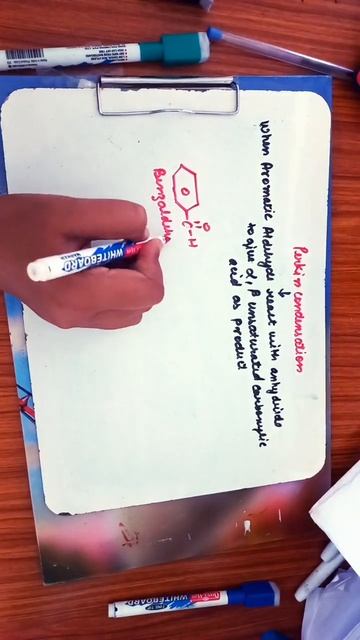 Perkin condensation
↓
When Aromatic Aldehyde react with anhydride
to give α, β unsaturated carboxylic
acid as product
O
C-H
Benzaldehy
WHITEBOARD
WHITEBOARD